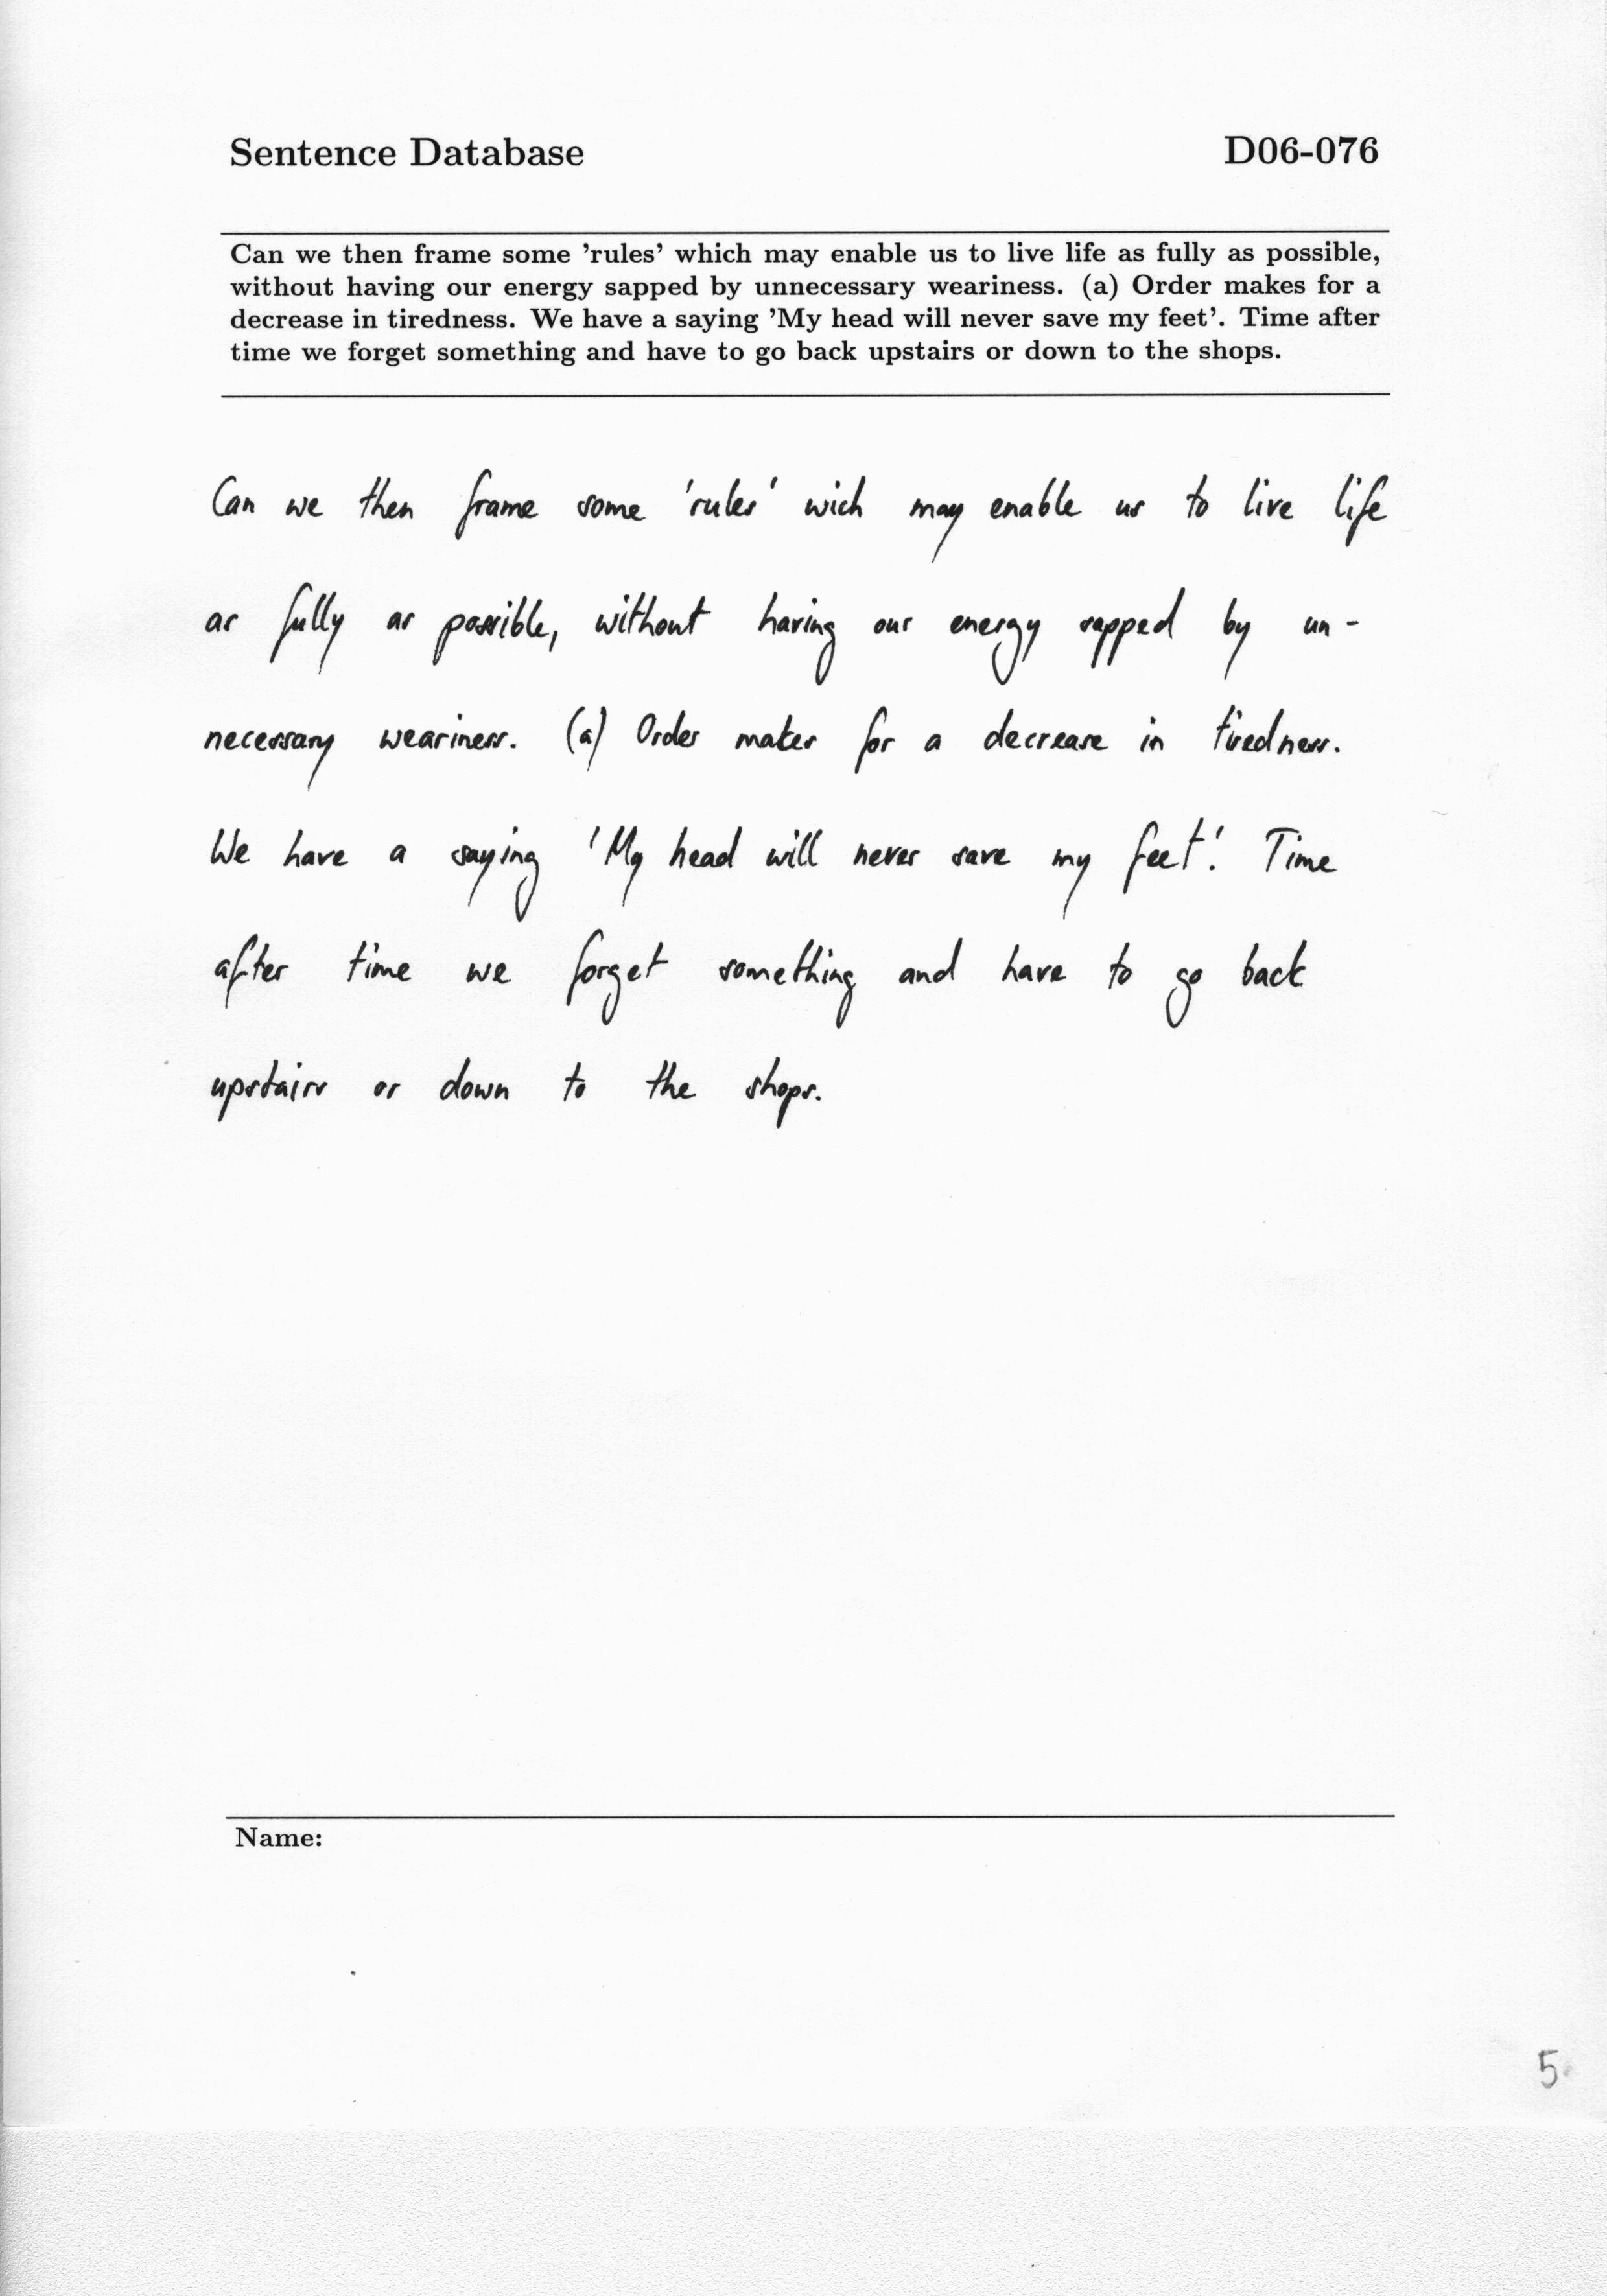 Sentence Database D06-076
Can we then frame some 'rules' which may enable us to live life as fully as possible,
without having our energy sapped by unnecessary weariness. (a) Order makes for a
decrease in tiredness. We have a saying 'My head will never save my feet'. Time after
time we forget something and have to go back upstairs or down to the shops.
Can we then frame some 'rules' wich may enable us to live life
as fully as possible, without having our energy sapped by un-
necessary weariness. (a) Order makes for a decrease in tiredness.
We have a saying 'My head will never save my feet'. Time
after time we forget something and have to go back
upstairs or down to the shops.
Name:
5